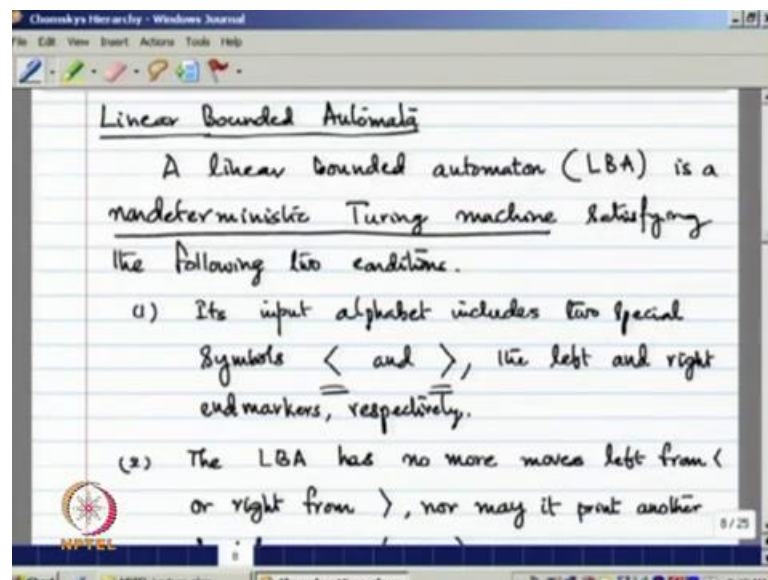 Chomskys Hierarchy - Windows Journal
File Edit View Insert Actions Tools Help
Linear Bounded Automata
A linear bounded automaton (LBA) is a
nondeterministic Turing machine satisfying
the following two conditions.
(1) Its input alphabet includes two special
symbols < and >, the left and right
endmarkers, respectively.
(2) The LBA has no more moves left from <
or right from >, nor may it print another
NPTEL
8/25
8